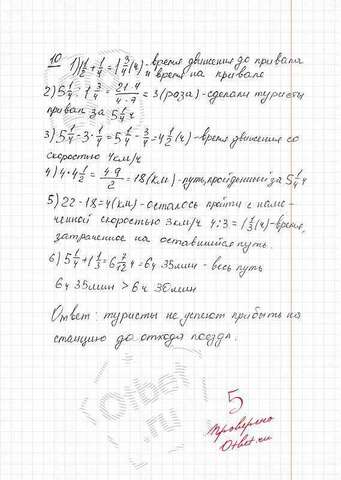 10 1) 1 1/2 + 1/4 = 1 3/4 (ч) - время движения до привала
и время на привале
2) 5 1/4 : 1 3/4 = 21·4/4·7 = 3 (раза) - сделали туристы
привал за 5 1/4 ч
3) 5 1/4 - 3 · 1/4 = 5 1/4 - 3/4 = 4 1/2 (ч) - время движения со
скоростью 4 км/ч
4) 4 · 4 1/2 = 4·9/2 = 18 (км) - путь, пройденный за 5 1/4 ч
5) 22 - 18 = 4 (км) - осталось пройти с наме-
ченной скоростью 3 км/ч 4 : 3 = 1 1/3 (ч) - время,
затраченное на оставшийся путь.
6) 5 1/4 + 1 1/3 = 6 7/12 ч = 6 ч 35 мин - весь путь
6 ч 35 мин > 6 ч 30 мин
Ответ: туристы не успеют прибыть на
станцию до отхода поезда.
Otbet
.ru
5
проверено
Otbet.ru